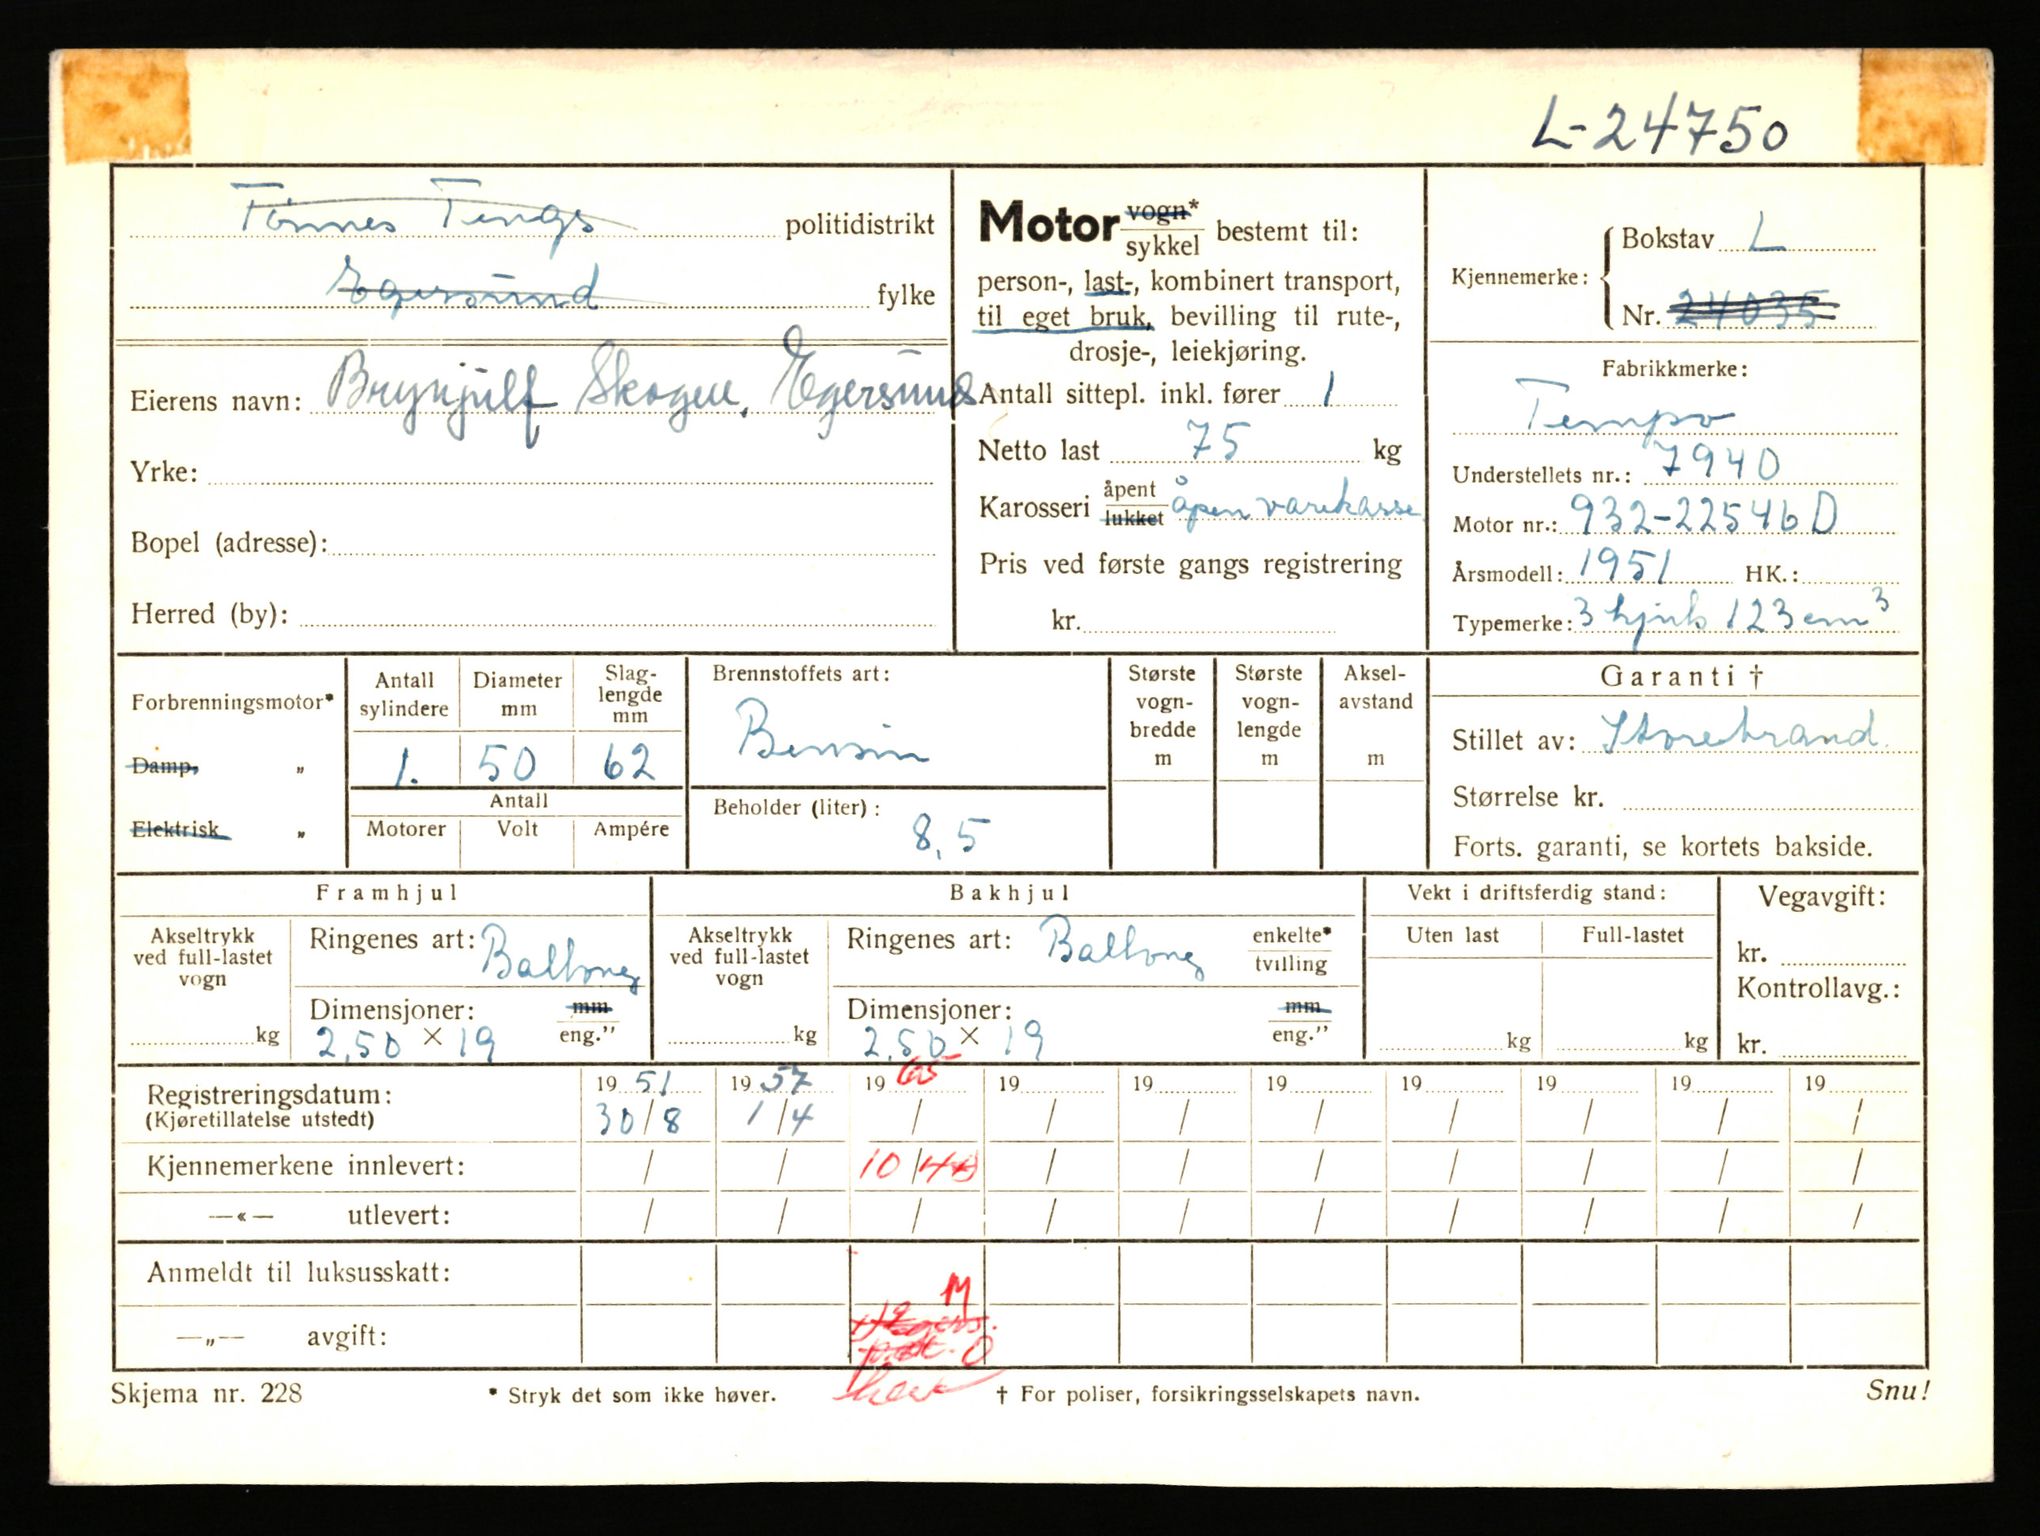 L-24750
Tönnes Tengs politidistrikt
Egersund fylke
Eierens navn: Brynjulf Skogen, Egersund
Yrke:
Bopel (adresse):
Herred (by):
Motor vogn* sykkel bestemt til:
person-, last-, kombinert transport,
til eget bruk, bevilling til rute-,
drosje-, leiekjøring.
Antall sittepl. inkl. fører 1
Netto last 75 kg
Karosseri åpent lukket åpen varekasse
Pris ved første gangs registrering
kr.
Kjennemerke: Bokstav L
Nr. 24035
Fabrikkmerke:
Tempo
Understellets nr.: 7940
Motor nr.: 932-22546D
Årsmodell: 1951 HK.:
Typemerke: 3 hjuls 123 cm³
Forbrenningsmotor*
Damp, „
Elektrisk „
Antall sylindere
Diameter mm
Slag- lengde mm
1. 50 62
Antall
Motorer Volt Ampére
Brennstoffets art:
Bensin
Beholder (liter): 8,5
Største vogn- bredde m
Største vogn- lengde m
Aksel- avstand m
Garanti †
Stillet av: Storebrand
Størrelse kr.
Forts. garanti, se kortets bakside.
Framhjul
Akseltrykk ved full-lastet vogn
kg
Ringenes art: Ballong
Dimensjoner: mm
2,50 × 19 eng.”
Bakhjul
Akseltrykk ved full-lastet vogn
kg
Ringenes art: Ballong enkelte* tvilling
Dimensjoner: mm
2,50 × 19 eng.”
Vekt i driftsferdig stand:
Uten last Full-lastet
kg kg
Vegavgift:
kr.
Kontrollavg.:
kr.
Registreringsdatum: 19 51 19 57 19 65 19 19 19 19 19 19 19
(Kjøretillatelse utstedt) 30/8 1/4 / / / / / / / /
Kjennemerkene innlevert: / / 10/4 / / / / / / /
—«— utlevert: / / / / / / / / / /
Anmeldt til luksusskatt:
M
—„— avgift:
Skjema nr. 228 * Stryk det som ikke høver. † For poliser, forsikringsselskapets navn. Snu!